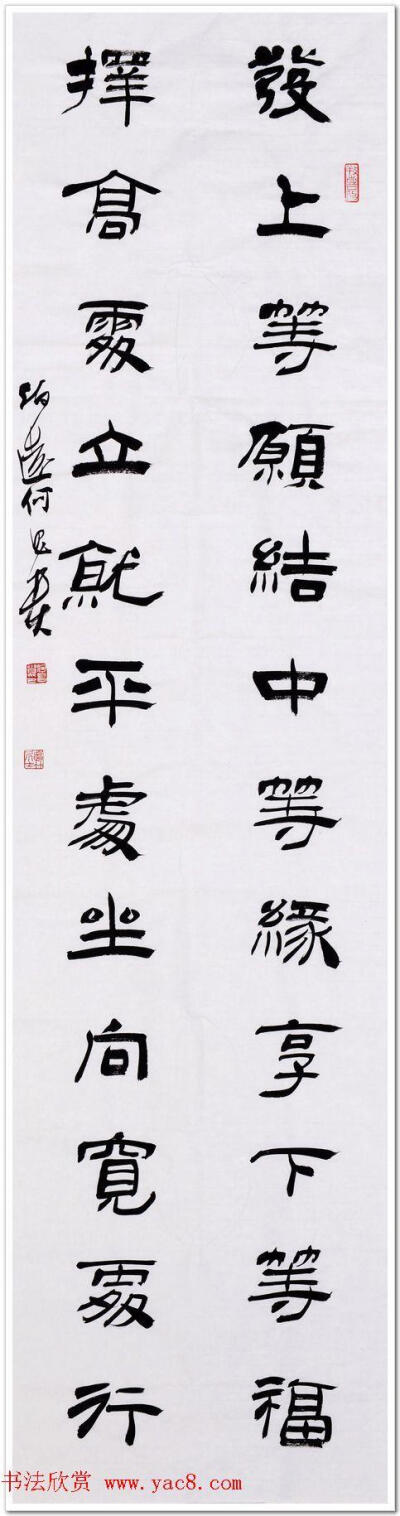 發上等願結中等緣享下等福
擇高處立就平處坐向寬處行
书法欣赏 www.yac8.com